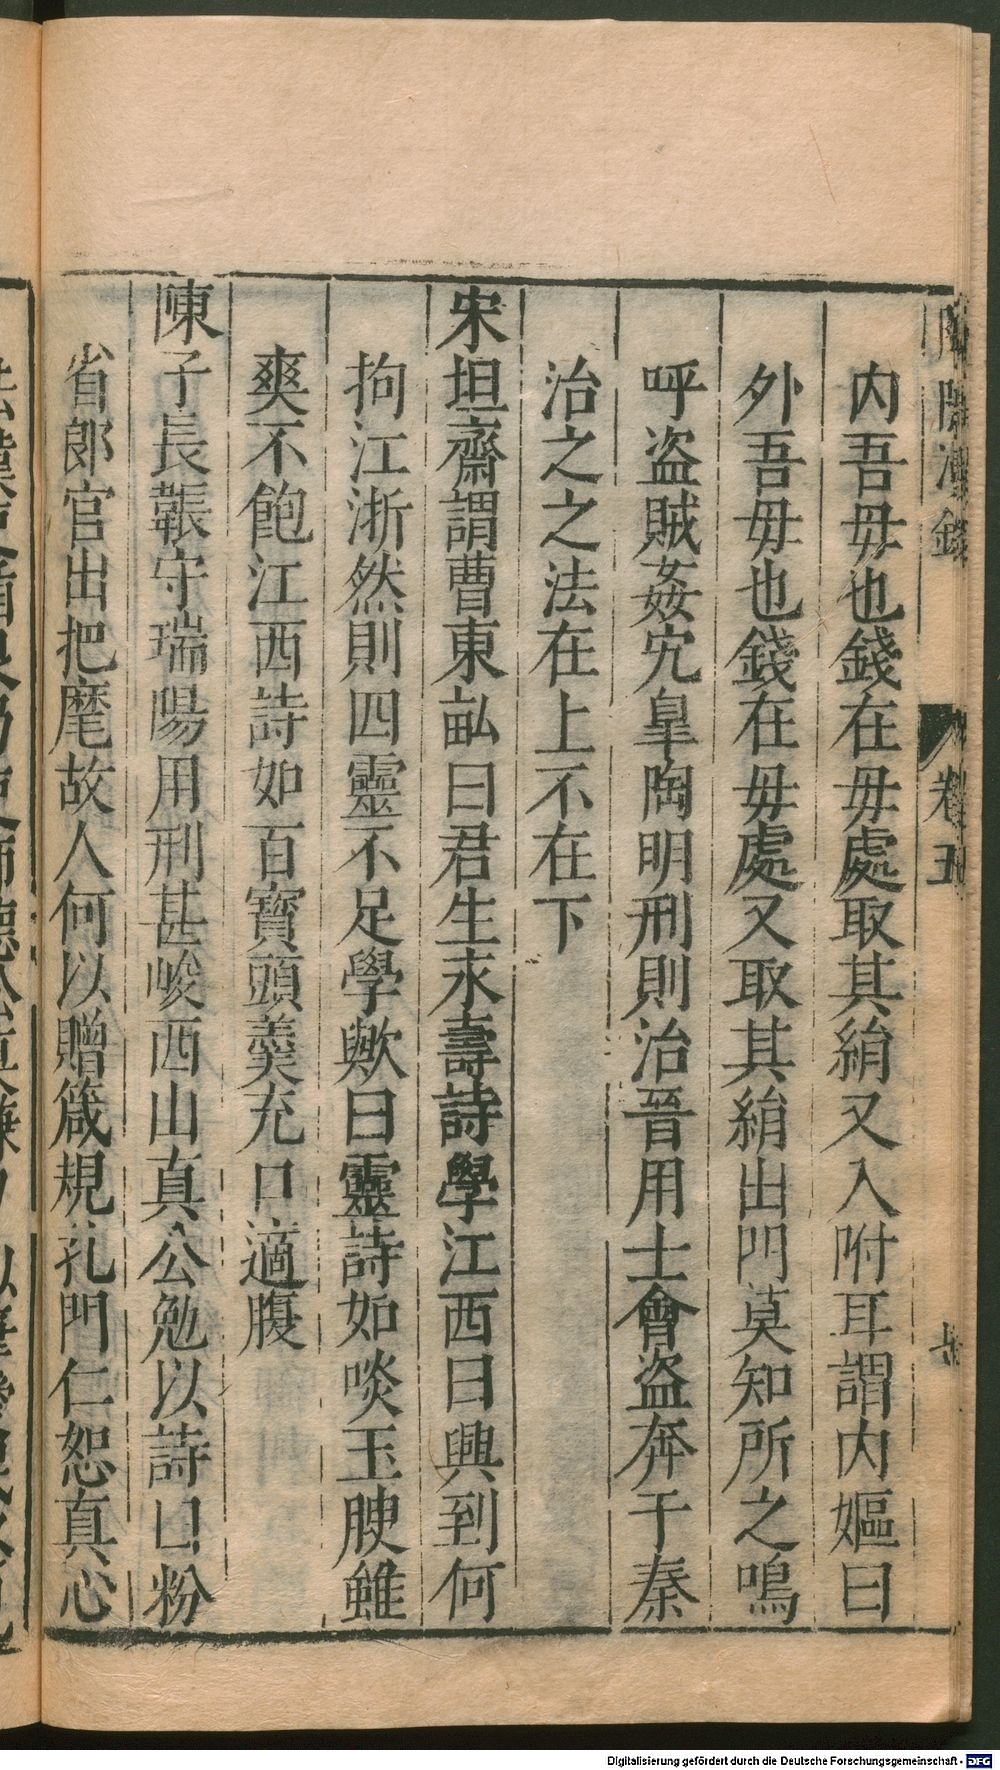 卷五
内吾毋也錢在毋處取其絹又入附耳謂内嫗曰
外吾毋也錢在毋處又取其絹出門莫知所之嗚
呼盗賊姦宄臯陶明刑則治晉用士會盗奔于秦
治之之法在上不在下
宋坦齋謂曹東畝曰君生永壽詩學江西曰興到何
拘江浙然則四靈不足學歟曰靈詩如啖玉腴雖
爽不飽江西詩如百寳頭羹充口適腹
陳子長韔守瑞陽用刑甚峻西山真公勉以詩曰粉
省郎官出把麾故人何以贈箴規孔門仁恕真心
Digitalisierung gefördert durch die Deutsche Forschungsgemeinschaft - DFG